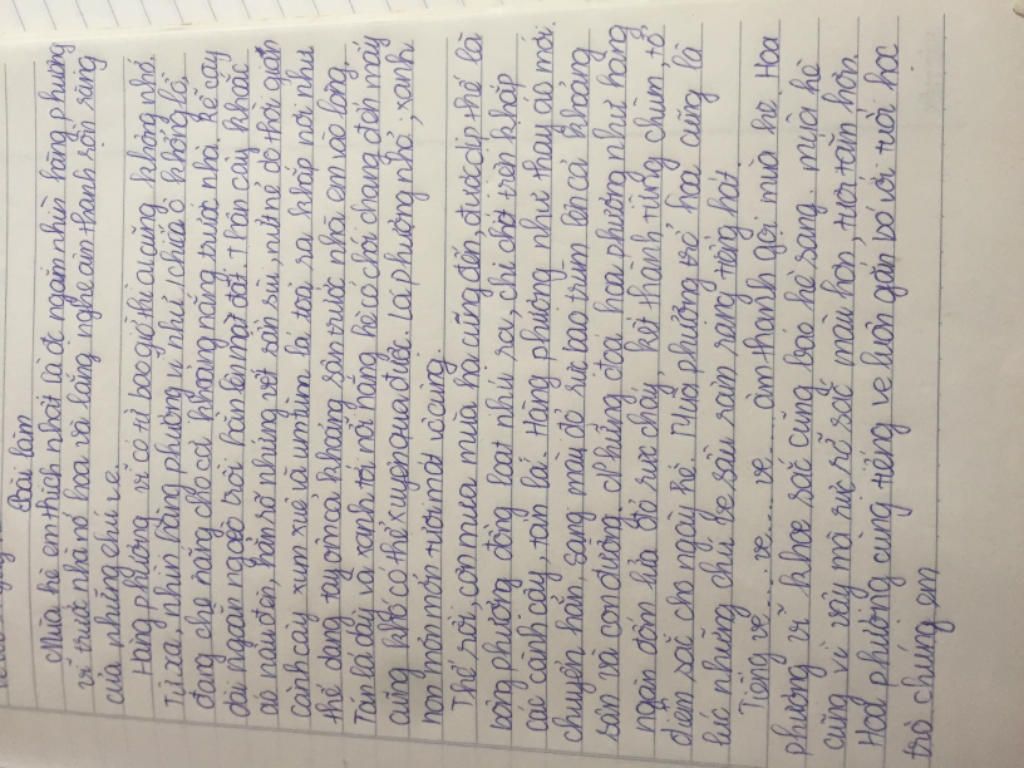 Bài làm
Mùa hè em thích nhất là đc ngắm nhìn hàng phượng
vĩ trước nhà nó hoa và lắng nghe âm thanh sôi sùng
của những chú ve
Hàng phượng vĩ có từ bao giờ thì ai cũng không nhớ.
Từ xa, nhìn hàng phượng vĩ như 1 chiếc ô khổng lồ
đang che nắng cho cả khoảng nắng trước nhà. Rễ cây
dài ngoằn ngoèo trồi hẳn lên mặt đất. Thân cây khoác
áo nâu đen, hằn rõ những vết sần sùi, nứt nẻ do thời gian
cành cây xum xuê và um tùm lá, toả ra khắp nơi như
thế dang tay ôm cả khoảng sân trước nhà em vào lòng.
Tán lá dày và xanh tới nỗi nắng hè có chói chang đến mấy
cũng khó có thể xuyên qua được. Lá phượng nhỏ, xanh
non mơn mởn tươi mát vô cùng.
Thế rồi, cơn mưa mùa hạ cũng đến, được dịp thế là
bông phượng đồng loạt nhú ra, chi chít trên khắp
các cành cây, tán lá. Hàng phượng như thay áo mới.
chuyển hẳn sang màu đỏ rực bao trùm lên cả khoảng
sân và con đường. Những đoá hoa phượng như hàng
ngàn đốm lửa đỏ rực cháy, kết thành từng chùm, tô
điểm sắc cho ngày hè. Mùa phượng trổ hoa cũng là
lúc những chú ve sầu râm ran rộng tiếng hát
Tiếng ve ....... ve ..... ve ...... âm thanh gọi mùa hè. Hoa
phượng vĩ khoe sắc cũng báo hè sang. mùa hè
cũng vì vậy mà rực rỡ sắc màu hơn, tươi tắn hơn.
Hoa phượng cùng tiếng ve luôn gắn bó với tuổi học
trò chúng em